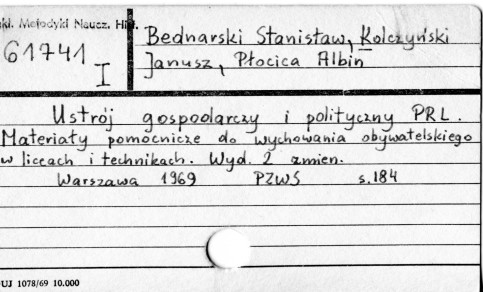 Metodyki Naucz. Hist.
61741
I
Bednarski Stanisław, Kolczyński
Janusz, Płocica Albin
Ustrój gospodarczy i polityczny PRL.
Materiały pomocnicze do wychowania obywatelskiego
w liceach i technikach. Wyd. 2 zmien.
Warszawa 1969 PZWS s.184
UJ 1078/69 10.000